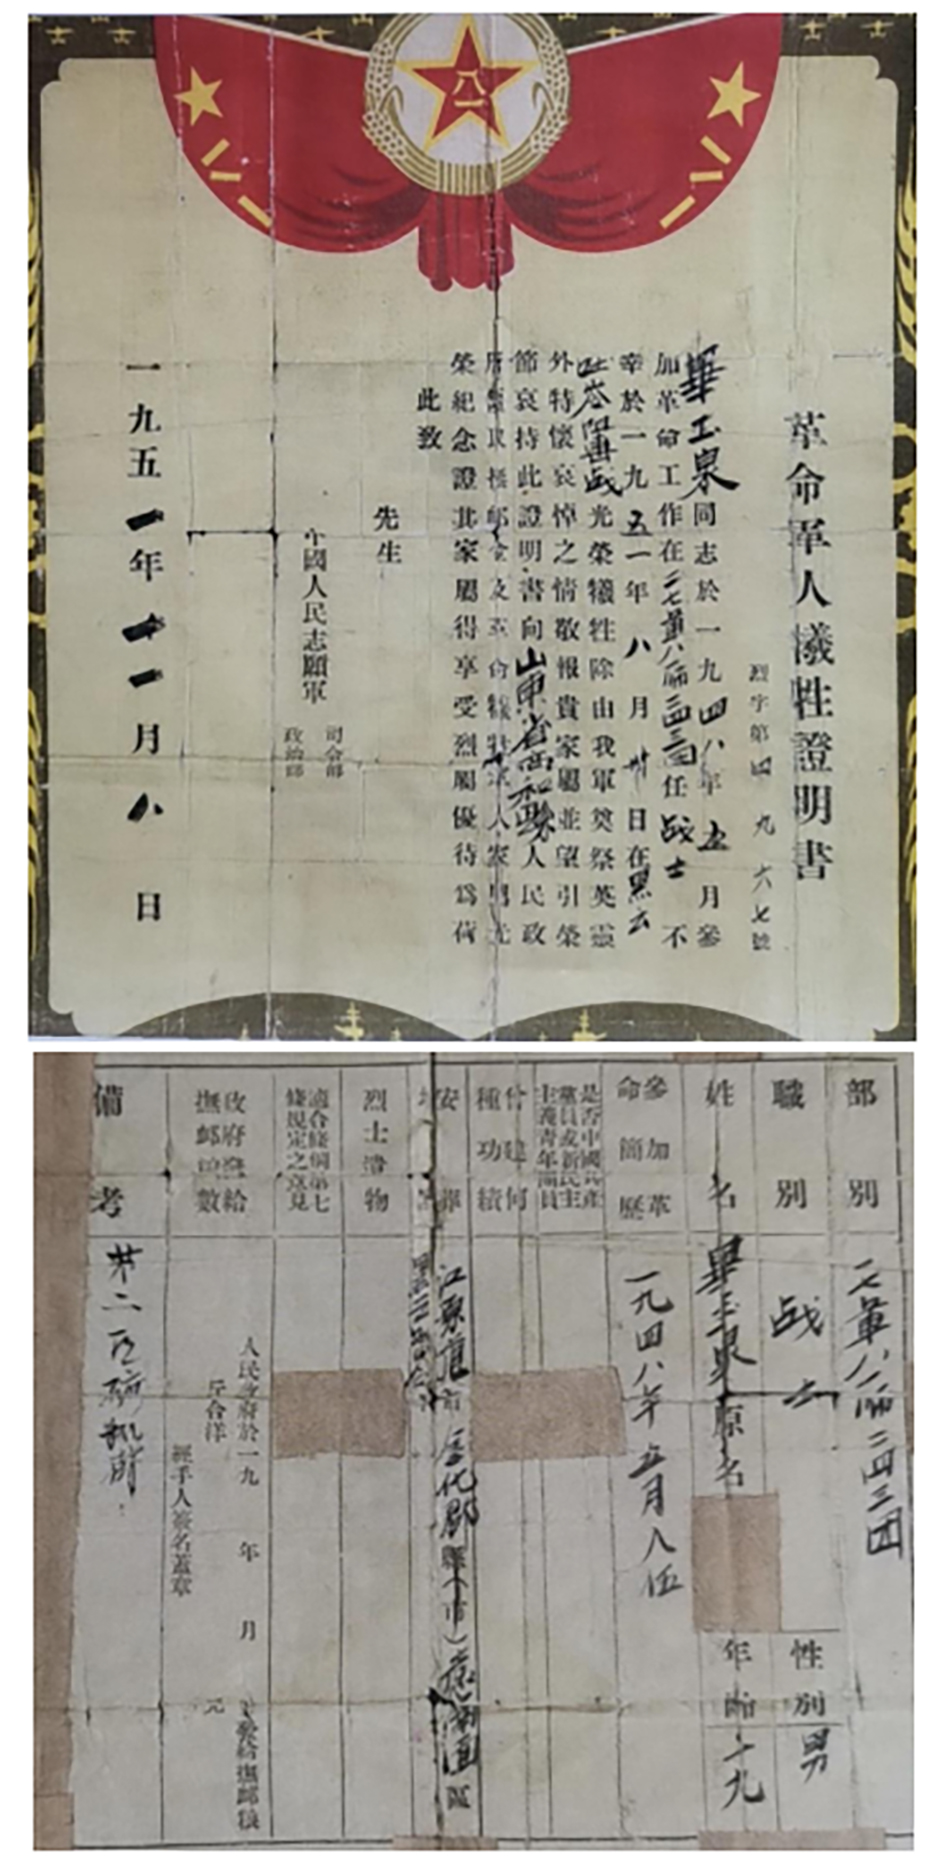 八一
革命軍人犧牲證明書
烈字第四九六七號
畢玉泉同志於一九四八年五月參
加革命工作在二七軍八一師二四三團任战士不
幸於一九五一年八月卅日在黑云
吐岺阻击战光榮犧牲除由我軍奠祭英靈
外特懷哀悼之情敬報貴家屬並望引榮
節哀持此證明書向山東省西和縣人民政
府領取撫邺金及革命犧牲軍人家屬光
榮紀念證其家屬得享受烈屬優待為荷
此致
先生
中國人民志願軍
司令部
政治部
一九五一年十一月八日
部別
二七軍八一師二四三团
職別
战士
性別
男
姓名
畢玉泉
原名
年齡
十九
參加革命簡歷
一九四八年五月入伍
是否中國共產黨員或新民主主義青年團員
曾建何種功績
安葬
江原道市
郡縣(市)
區
烈士遺物
適合條例第七條規定之意見
政府發給撫邺糧數
人民政府於一九 年 月
發給撫邺糧
斤合洋 元
經手人簽名蓋章
備考